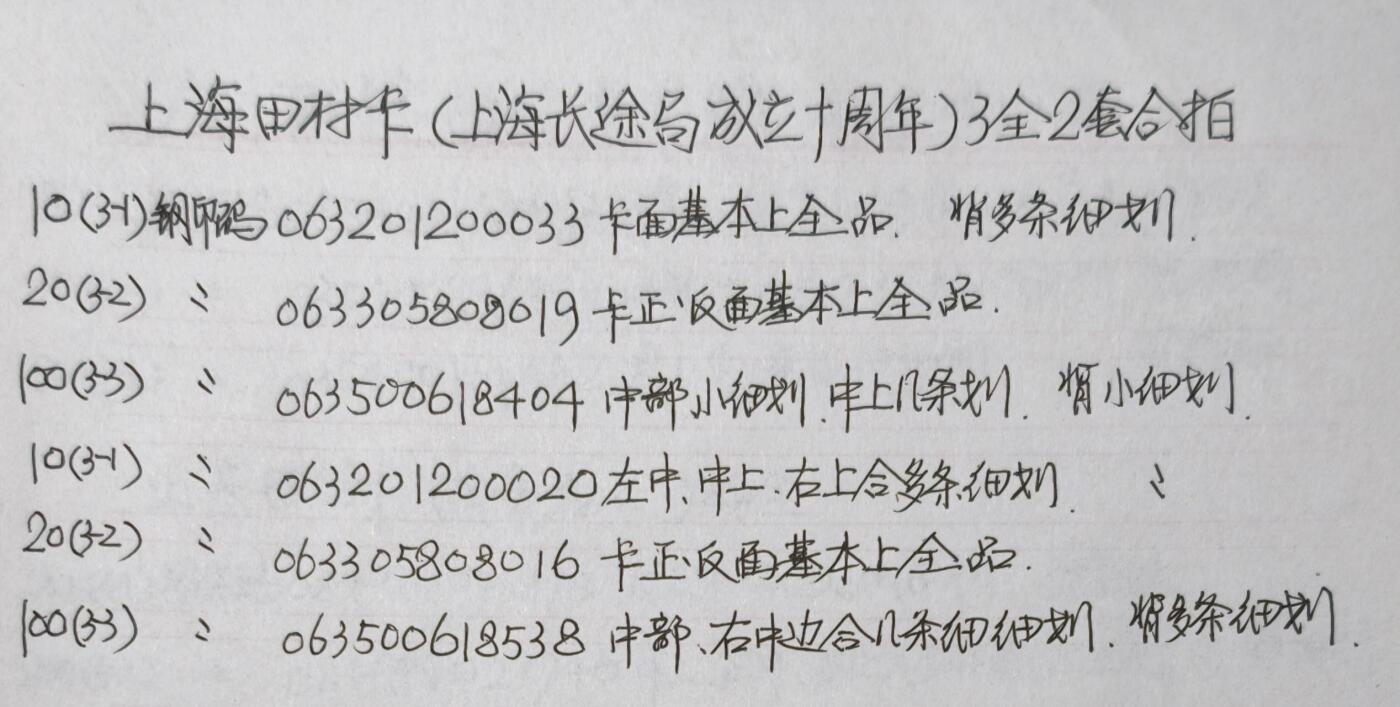 上海田村卡(上海长途局成立十周年)3全2套合拍
10(3-1)钢印码063201200033卡面基本上全品. 背多条细划.
20(3-2) 〃 063305808019卡正.反面基本上全品.
100(3-3) 〃 063500618404中部小细划.中上几条划. 背小细划.
10(3-1) 〃 063201200020左中、中上.右上合多条细划. 〃
20(3-2) 〃 063305808016卡正.反面基本上全品.
100(3-3) 〃 063500618538中部、右中边合几条细细划.背多条细划.